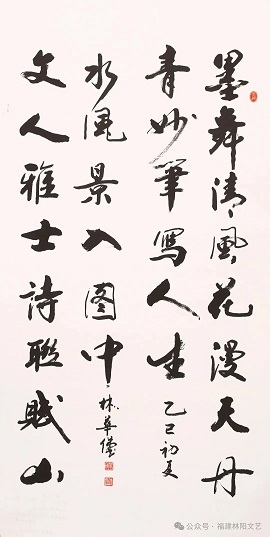 墨舞清風花漫天丹
青妙筆寫人生
乙巳初夏
文人雅士詩聯賦山
水風景入圖中
林華
公众号·福建林阳文艺